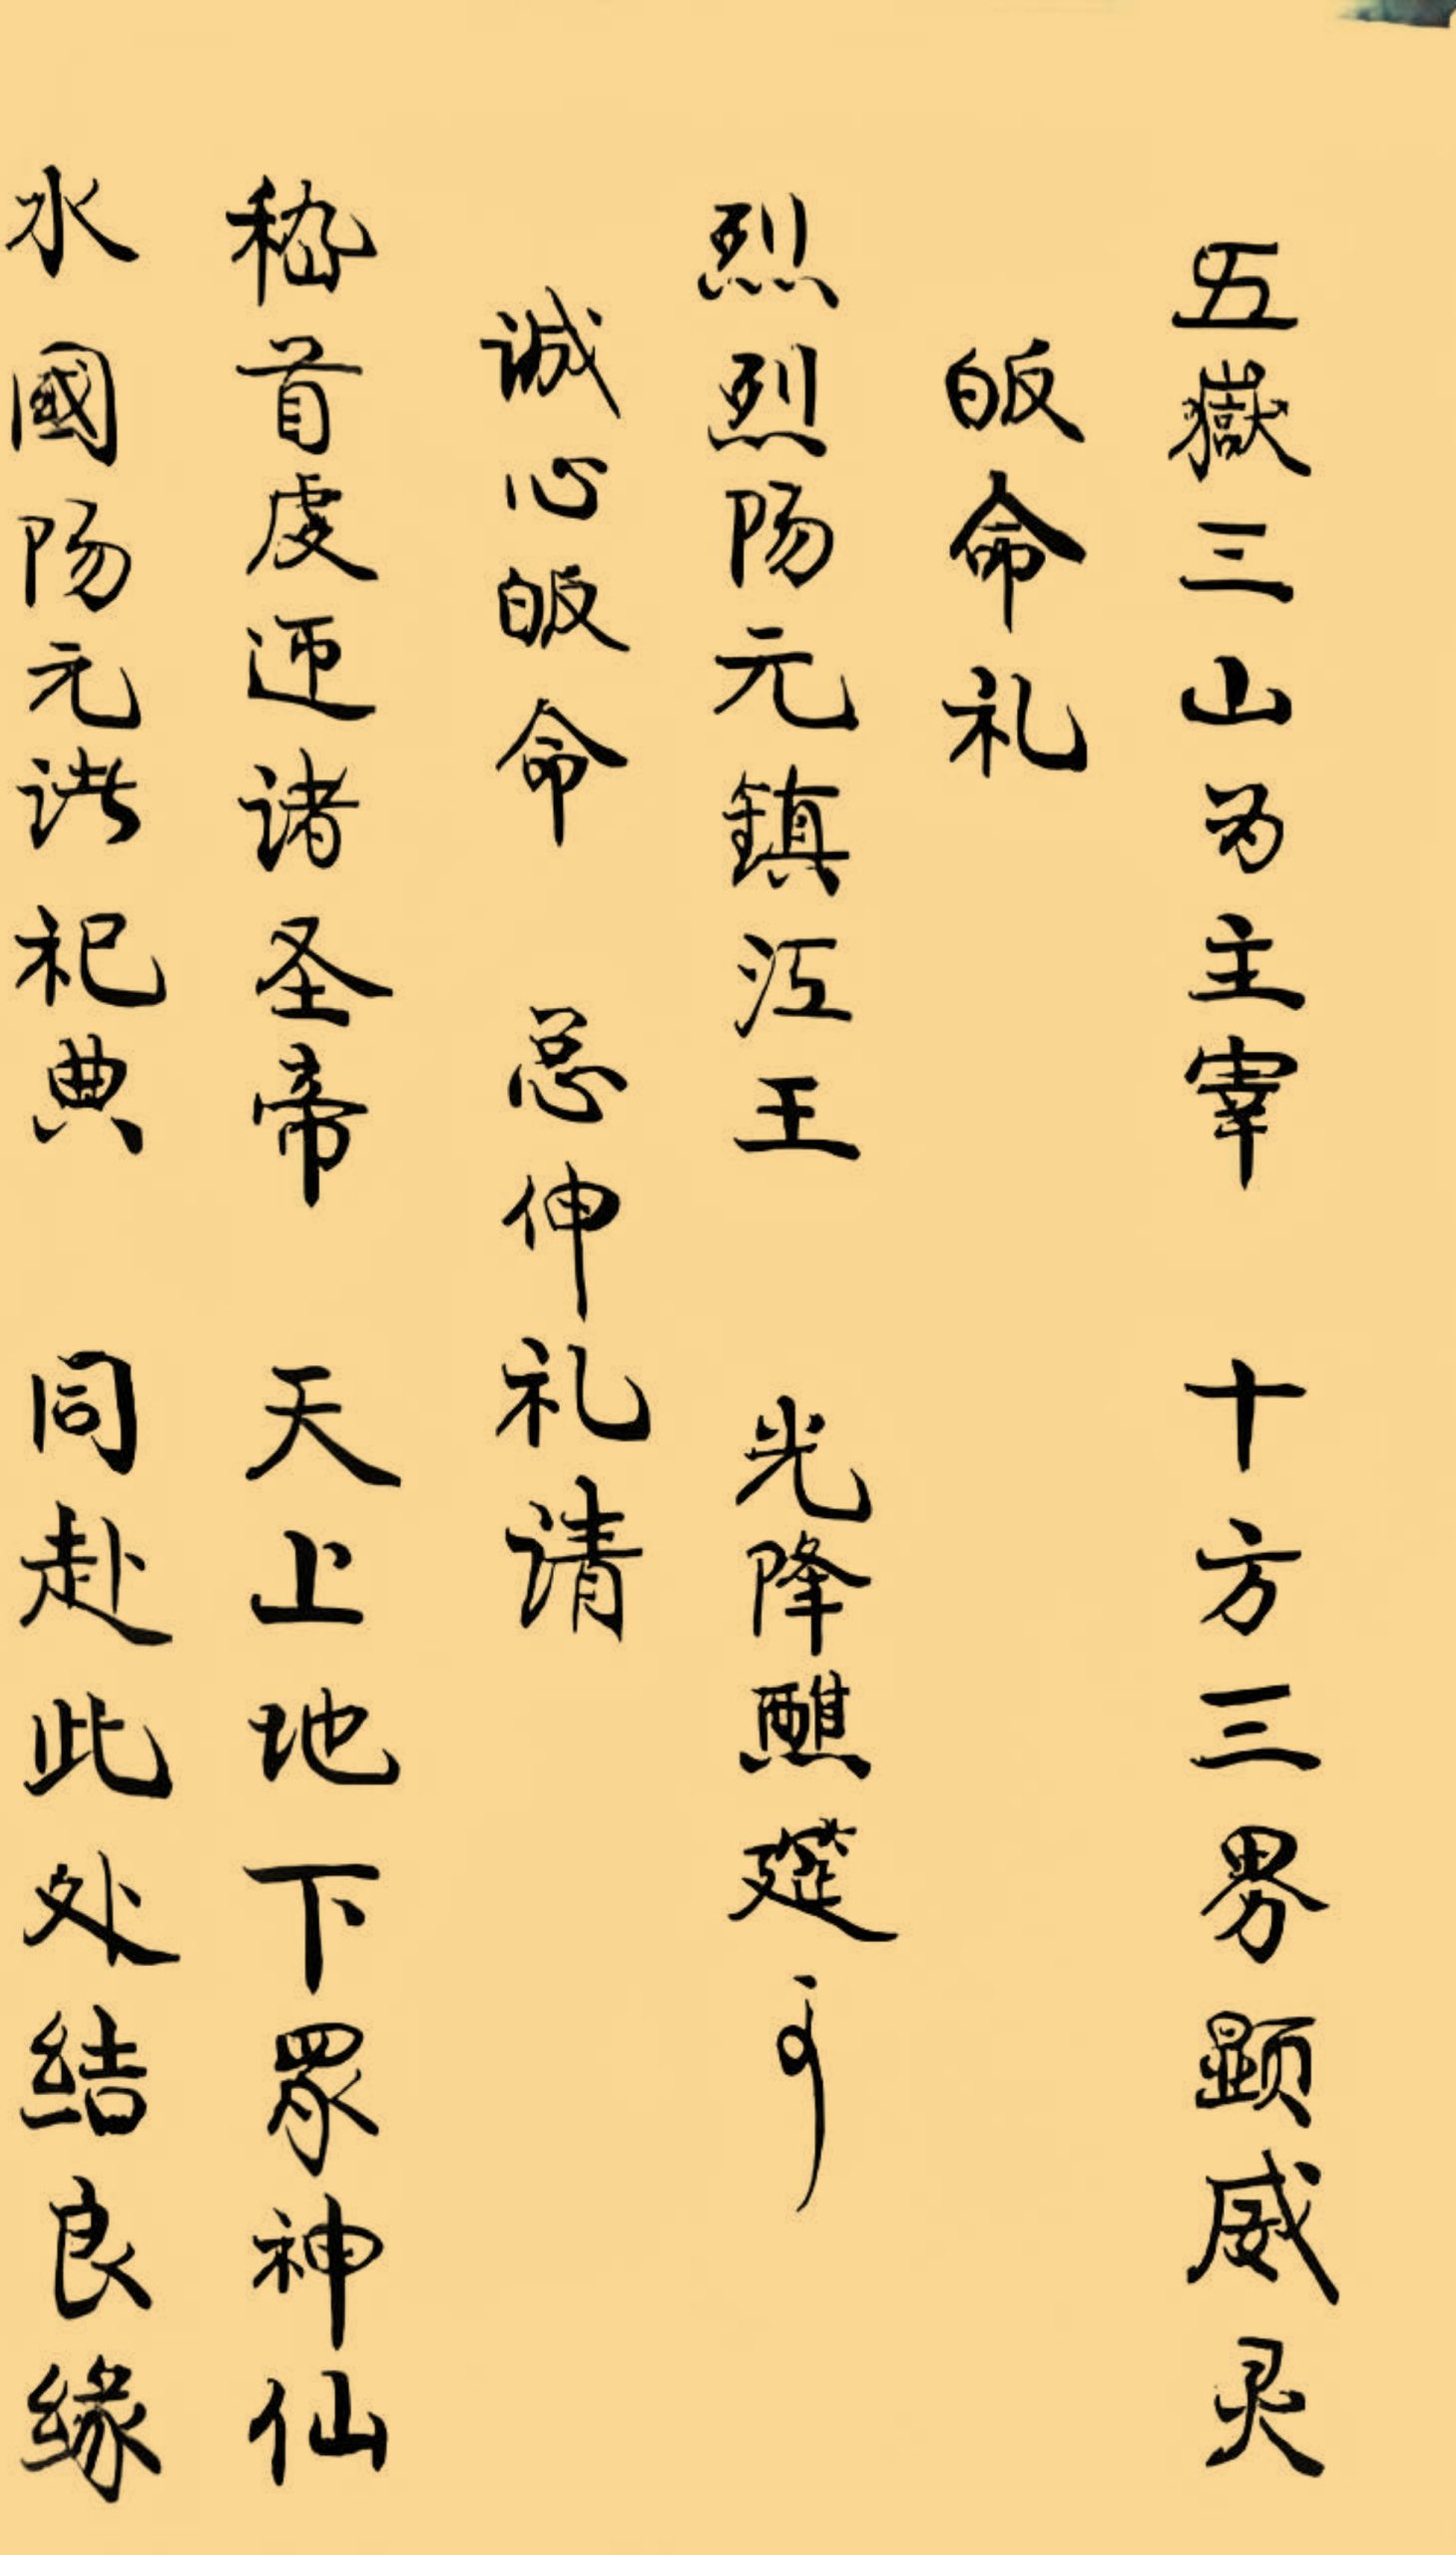 五嶽三山为主宰 十方三界顕威灵
皈命礼
烈烈阳元鎮江王 光降醮筵
诚心皈命 总伸礼请
嵇首虔迎诸圣帝 天上地下眾神仙
水國阳元诸祀典 同赴此处结良缘